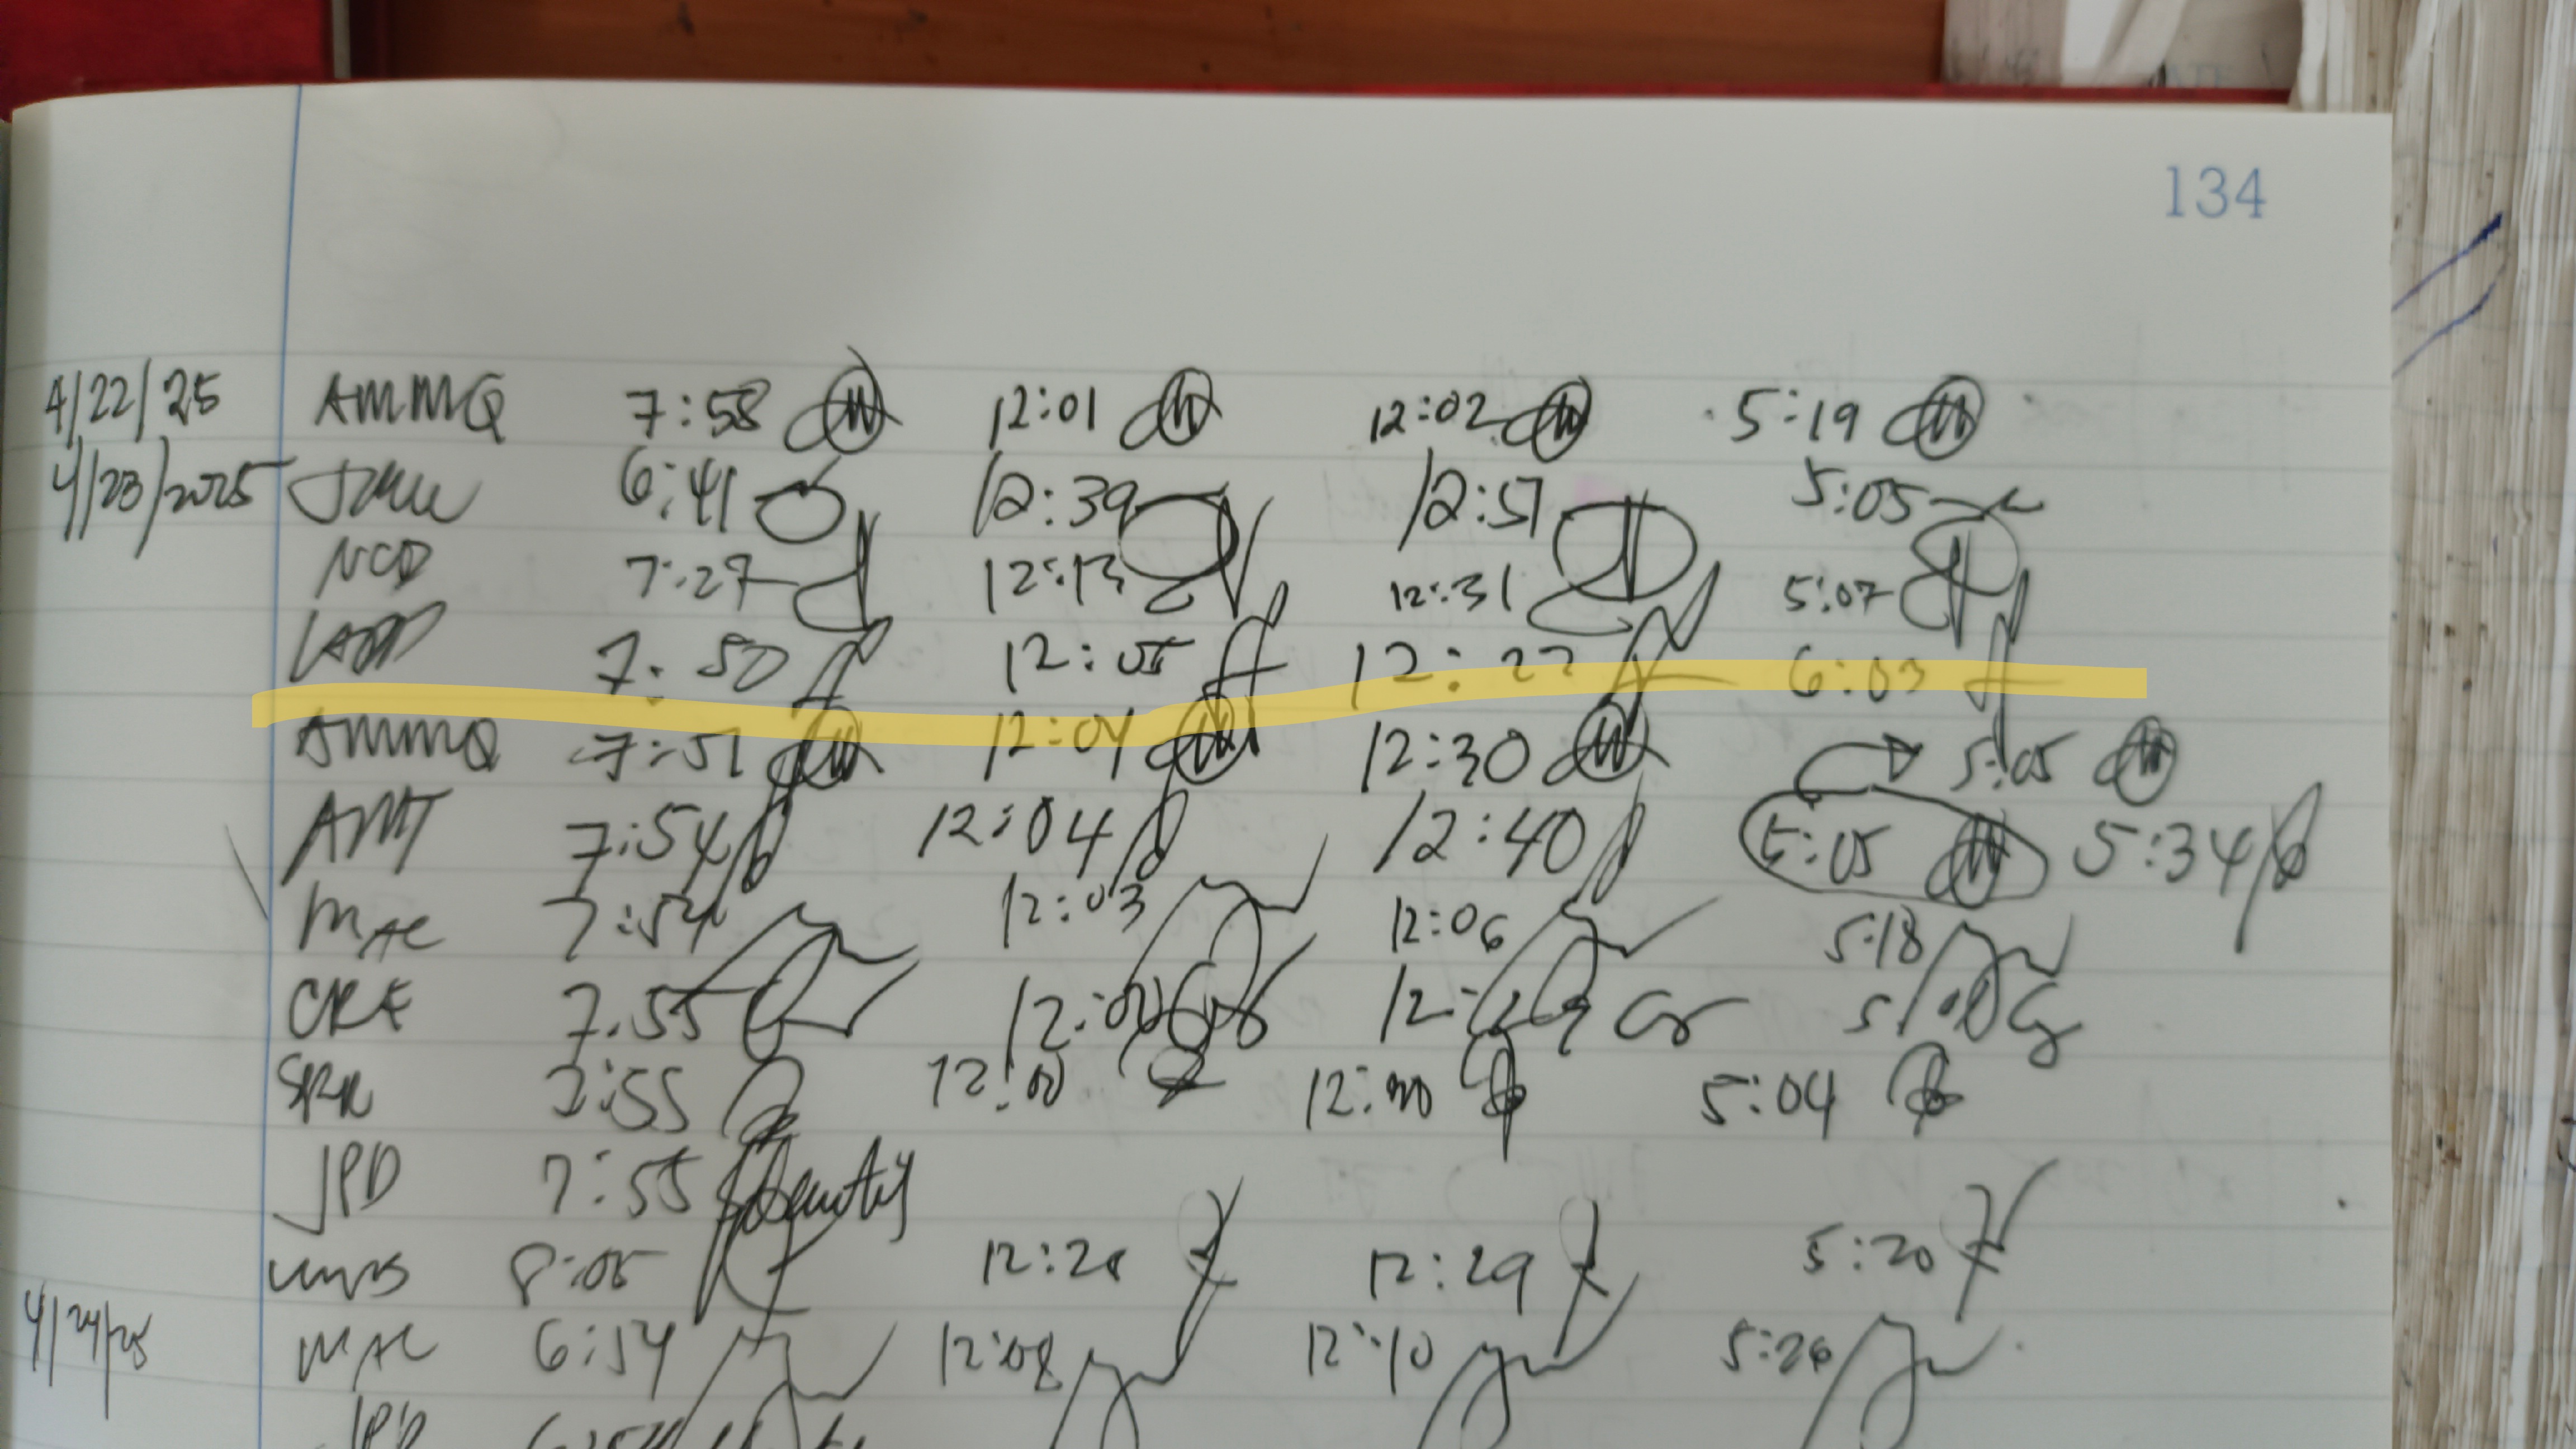 134
4/22/25 AMMQ 7:58 12:01 12:02 5:19
4/23/2025 6:41 12:39 12:51 5:05
NCD 7:27 12:13 12:31 5:07
7:50 12:05 12:22 6:03
AMMQ 7:51 12:04 12:30 5:05
AMT 7:54 12:04 12:40 5:05 5:34
MAC 7:54 12:03 12:06 5:18
CRE 7:55
SRR 7:55 12:00 5:04
JPD 7:55
8:05 12:28 12:29 5:20
4/24/25 MAC 6:54 12:08 12:10 5:26
JPD